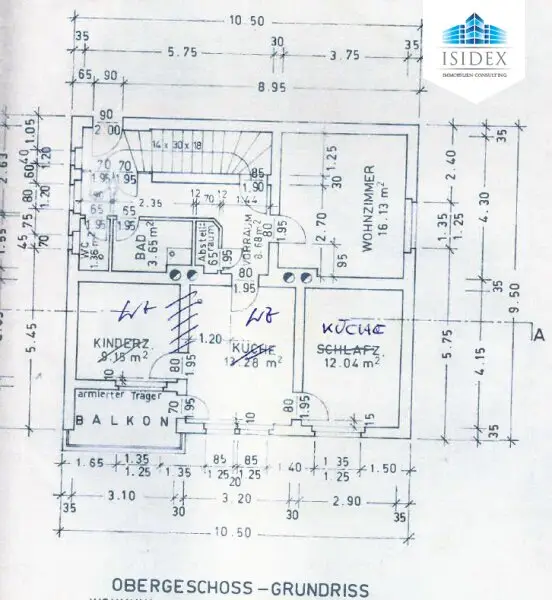 ISIDEX
IMMOBILIEN CONSULTING
10.50
35
5.75
30
3.75
35
65 90
8.95
90
2.00
14 x 30 x 18
35
1.05
1.20
40
60
1.20
80
75
45
70
5.45
70 70
1.95 1.95
65
1.95
65
1.95
2.35
12 70 12
1.44
85
1.90
1.25
30
2.70
80
1.95
95
WOHNZIMMER
16.13 m²
2.40
4.30
1.35
1.25
5.75
9.50
4.15
35
35
WC
1.36 m²
BAD
3.65 m²
Abstell-
raum
65
95
VORRAUM
8.68 m²
80
1.95
WZ
WZ
KÜCHE
KINDERZ.
9.15 m²
1.20
KÜCHE
13.28 m²
SCHLAFZ.
12.04 m²
A
80
1.95
10
armierter Träger
BALKON
70
1.95
10
80
1.95
15
1.65
1.35
1.25
1.35
1.25
85
1.25
85
1.25
20
1.40
1.35
1.25
1.50
35
3.10
30
3.20
30
2.90
35
10.50
OBERGESCHOSS – GRUNDRISS